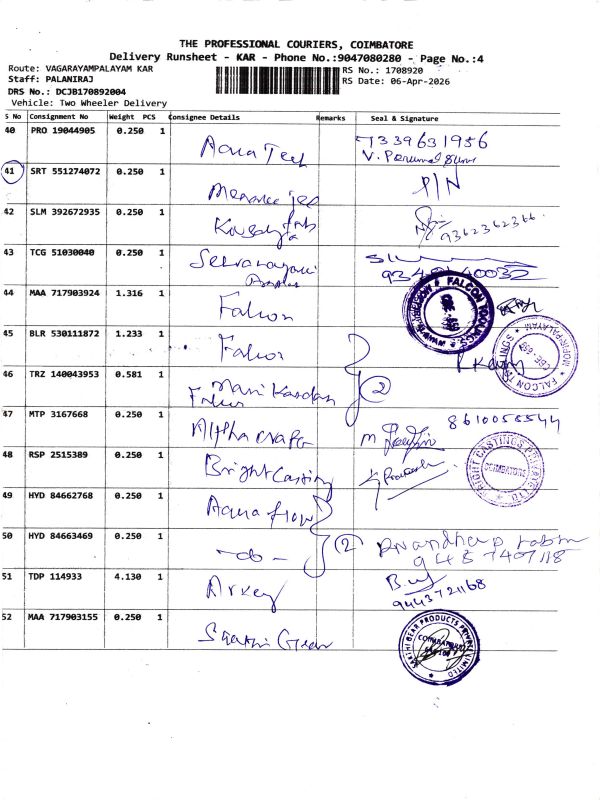 THE PROFESSIONAL COURIERS, COIMBATORE
Delivery Runsheet - KAR - Phone No.:9047080280 - Page No.:4
Route: VAGARAYAMPALAYAM KAR
RS No.: 1708920
Staff: PALANIRAJ
RS Date: 06-Apr-2026
DRS No.: DCJB170892004
Vehicle: Two Wheeler Delivery
S No Consignment No Weight PCS Consignee Details Remarks Seal & Signature
40 PRO 19044905 0.250 1 Aqua Tech 7339631956
41 SRT 551274072 0.250 1 P/N
42 SLM 392672935 0.250 1 9362362366
43 TCG 51030040 0.250 1
44 MAA 717903924 1.316 1 Falcon
FALCON TOOLINGS
45 BLR 530111872 1.233 1 Falcon
FALCON TOOLINGS
46 TRZ 140043953 0.581 1 Mani Kandan 2
Falcon
47 MTP 3167668 0.250 1 Alpha craft 8610055544
48 RSP 2515389 0.250 1 Bright Casting
BRIGHT CASTINGS PRIVATE LTD
COIMBATORE
49 HYD 84662768 0.250 1 Aqua flow
50 HYD 84663469 0.250 1 -do- 2
9487407118
51 TDP 114933 4.130 1 Arkey
9443721168
52 MAA 717903155 0.250 1 Shakthi Gear
SAKTHI GEAR PRODUCTS PRIVATE LIMITED
COIMBATORE